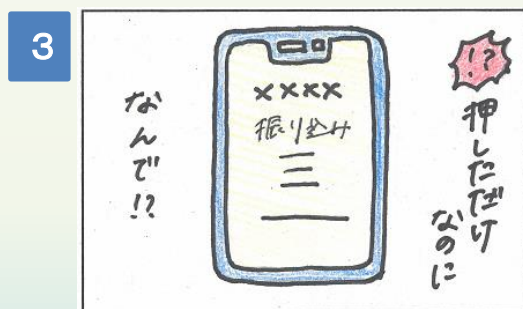 3
!?
押しただけ
なのに
××××
振り込み
なんで!?